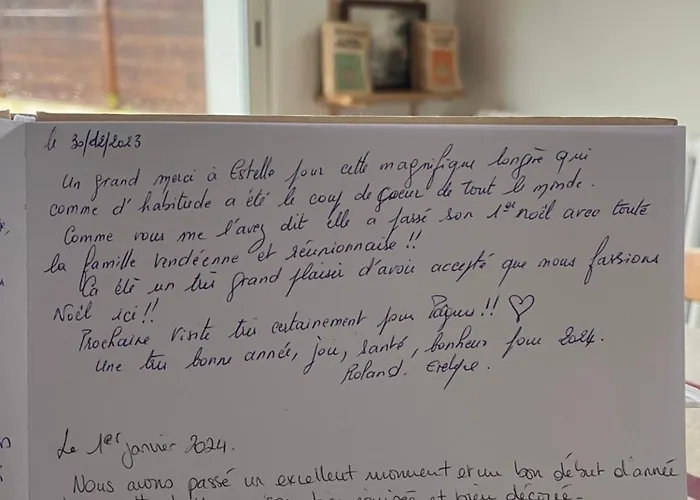 le 30/12/2023
Un grand merci à Estelle pour cette magnifique longère qui
comme d'habitude a été le coup de coeur de tout le monde.
Comme vous me l'avez dit elle a passé son 1er noël avec toute
la famille vendéenne et réunionnaise !!
Ça été un très grand plaisir d'avoir accepté que nous fassions
Noël ici !!
Prochaine visite très certainement pour Pâques !! ♡
Une très bonne année, joie, santé, bonheur pour 2024.
Roland.
Le 1er janvier 2024.
Nous avons passé un excellent moment et un bon début d'année
et bien décorée.